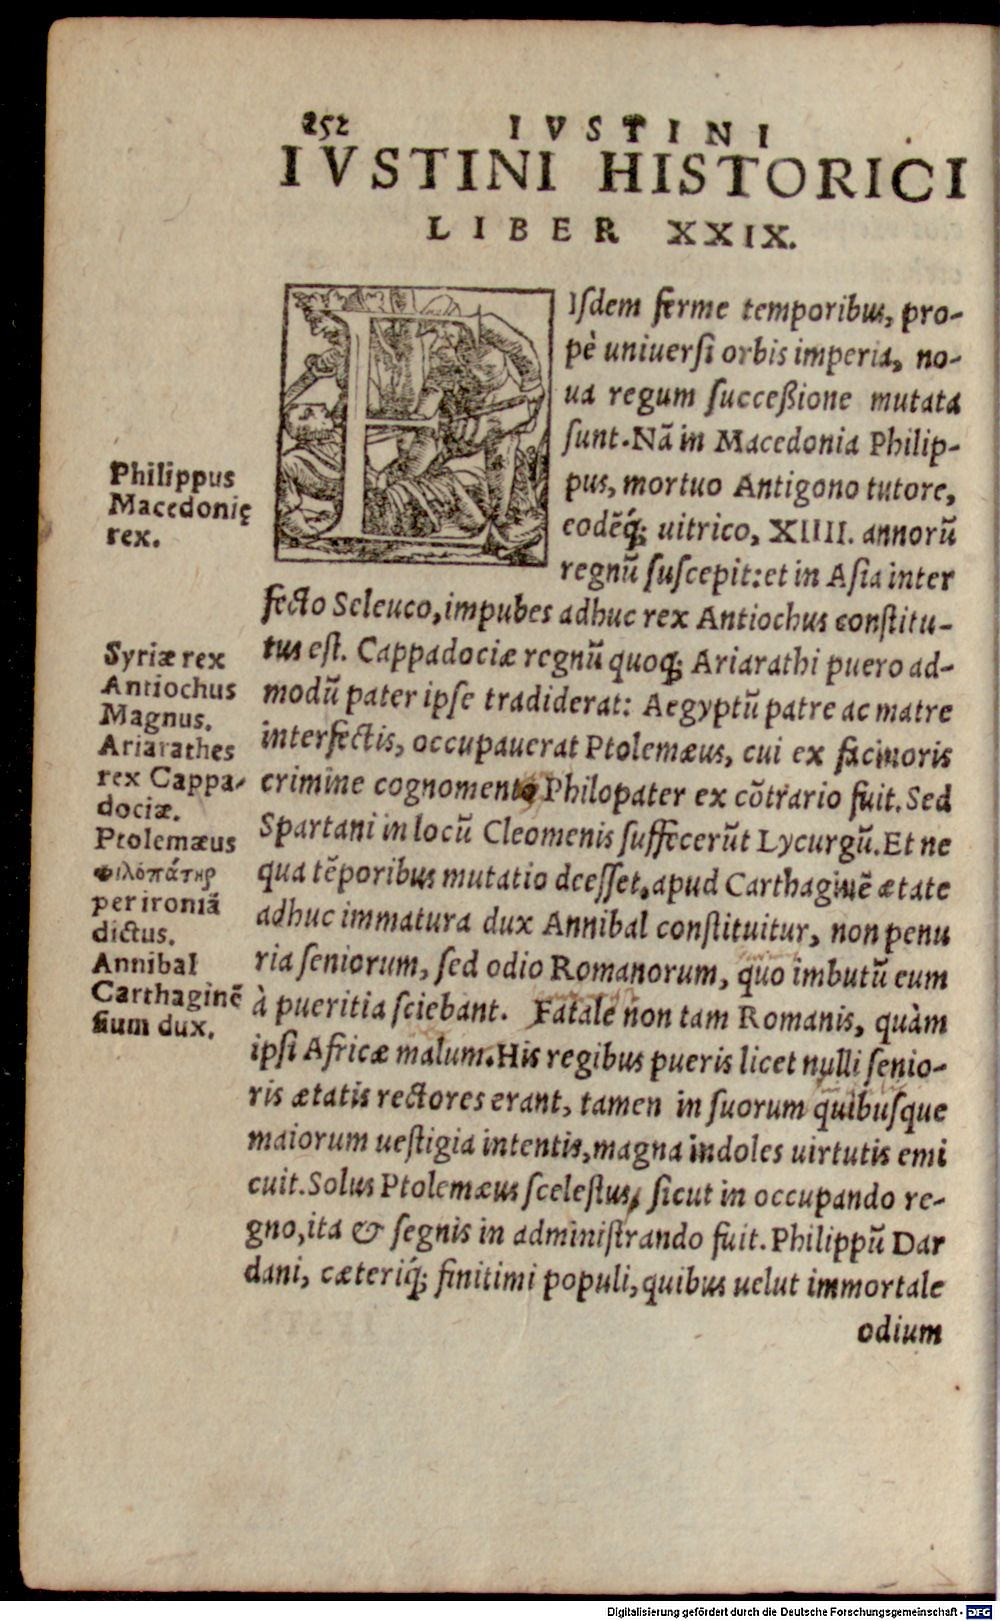 252 IVSTINI
IVSTINI HISTORICI
LIBER XXIX.
HIſdem ferme temporibus, pro-
pè uniuerſi orbis imperia, no-
ua regum ſucceßione mutata
ſunt. Nã in Macedonia Philip-
pus, mortuo Antigono tutore,
eodẽq́; uitrico, XIIII. annorũ
regnũ ſuſcepit: et in Aſia inter
fecto Seleuco, impubes adhuc rex Antiochus conſtitu-
tus eſt. Cappadociæ regnũ quoq; Ariarathi puero ad-
modũ pater ipſe tradiderat: Aegyptũ patre ac matre
interfectis, occupauerat Ptolemæus, cui ex facinoris
crimine cognomento Philopater ex cõtrario fuit. Sed
Spartani in locũ Cleomenis ſuffecerũt Lycurgũ. Et ne
qua tẽporibus mutatio deeſſet, apud Carthaginẽ ætate
adhuc immatura dux Annibal conſtituitur, non penu
ria ſeniorum, ſed odio Romanorum, quo imbutũ eum
à pueritia ſciebant. Fatale non tam Romanis, quàm
ipſi Africæ malum. His regibus pueris licet nulli ſenio-
ris ætatis rectores erant, tamen in ſuorum quibuſque
maiorum ueſtigia intentis, magna indoles uirtutis emi
cuit. Solus Ptolemæus ſceleſtus, ſicut in occupando re-
gno, ita & ſegnis in adminiſtrando fuit. Philippũ Dar
dani, cæteriq́; finitimi populi, quibus uelut immortale
odium
Philippus
Macedonię
rex.
Syriæ rex
Antiochus
Magnus.
Ariarathes
rex Cappa-
dociæ.
Ptolemæus
φιλοπάτηρ
per ironiã
dictus.
Annibal
Carthaginẽ
ſium dux.
Digitalisierung gefördert durch die Deutsche Forschungsgemeinschaft - DFG